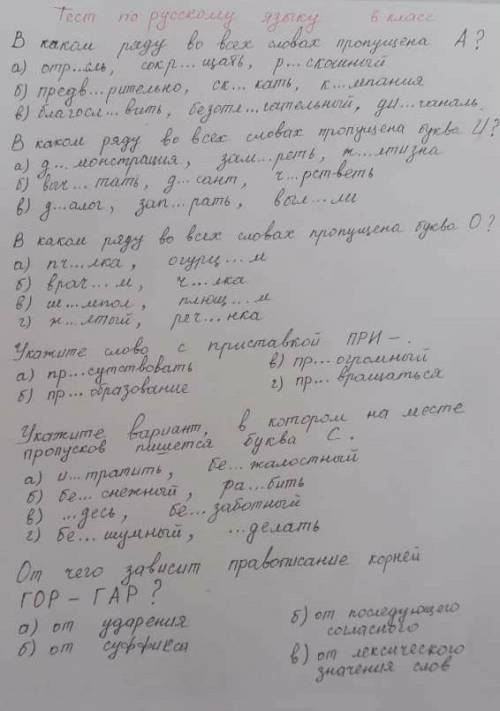 Тест по русскому языку 6 класс
В каком ряду во всех словах пропущена А?
а) отр...сль, сокр...щать, р...скошный
б) предв...рительно, ск...кать, к...мпания
в) благосл...вить, безотл...гательный, ди...гональ.
В каком ряду во всех словах пропущена буква И?
а) д...монстрация, зам...реть, ж...лтизна
б) выч...тать, д...сант, ч...рстветь
в) д...алог, зап...рать, выл...ли
В каком ряду во всех словах пропущена буква О?
а) пч...лка, огурц...м
б) врач...м, ч...лка
в) ш...мпол, плющ...м
г) ж...лтый, реч...нка
Укажите слово с приставкой ПРИ-.
а) пр...сутствовать в) пр...огромный
б) пр...образование г) пр...вращаться
Укажите вариант, в котором на месте
пропусков пишется буква С.
а) и...тратить, бе...жалостный
б) бе...снежный, ра...бить
в) ...десь, бе...заботный
г) бе...шумный, ...делать
От чего зависит правописание корней
ГОР-ГАР?
а) от ударения
б) от суффикса
б) от последующего
согласного
в) от лексического
значения слов